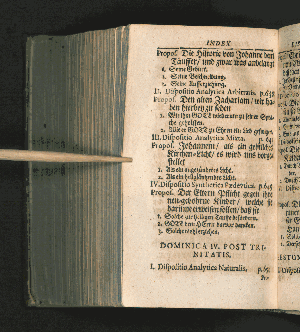 INDEX
Propos. Die Historie von Johanne dem
Täuffer, und zwar was anbelangt
1. Seine Geburt.
2. Seine Beschneidung.
3. Seine Aufferziehung.
II. Dispositio Analytica Arbitraria. p.
Propos. Den alten Zachariam, wir ha-
ben hierbey zu sehen
1. Wie ihm GOTT wiederum zu seiner Spra-
che geholffen.
2. Wie er GOTT zu Ehren ein Lied gesungen.
III. Dispositio Analytica Mixta. p.
Propos. Johannem, als ein
Kirchen-Licht, es wird uns vorge-
stellet
1. Als ein angezündetes Licht.
2. Als ein Licht.
IV. Dispositio Synthetica Pædevtica. p.
Propos. Der Eltern Pflicht gegen ihre
neu-gebohrne Kinder, welche sie
darinn erweisen sollen, daß sie
1. Solche zur heiligen Tauffe befördern.
2. GOTT dem HErrn davor dancken.
3. Solche wohl erziehen.
DOMINICA IV. POST TRI-
NITATIS.
I. Dispositio Analytica Naturalis. p.